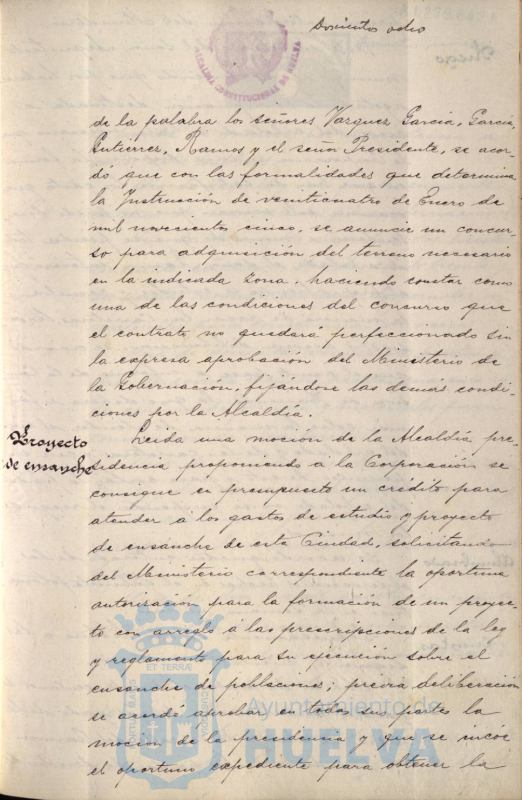 Doscientos ocho
ALCALDIA CONSTITUCIONAL DE HUELVA
de la palabra los señores Vazquez Garcia, Garcia
Gutierrez, Ramos y el señor Presidente, se acor-
dó que con las formalidades que determina
la Instrucción de veinticuatro de Enero de
mil novecientos cinco, se anuncie un concur-
so para adquisición del terreno necesario
en la indicada zona, haciendo constar como
una de las condiciones del concurso que
el contrato no quedará perfeccionado sin
la expresa aprobación del Ministerio de
la Gobernación, fijándose las demás condi-
ciones por la Alcaldía.
Proyecto
de ensanche
Leida una moción de la Alcaldía pre-
sidencia proponiendo á la Corporación se
consigne en presupuesto un crédito para
atender á los gastos de estudio y proyecto
de ensanche de esta Ciudad, solicitando
del Ministerio correspondiente la oportuna
autorización para la formación de un proyec-
to con arreglo á las prescripciones de la ley
y reglamento para su ejecución sobre el
ensanche de poblaciones; previa deliberación
se acordó aprobar en todas sus partes la
moción de la presidencia y que se incóe
el oportuno expediente para obtener la
Ayuntamiento de
HUELVA